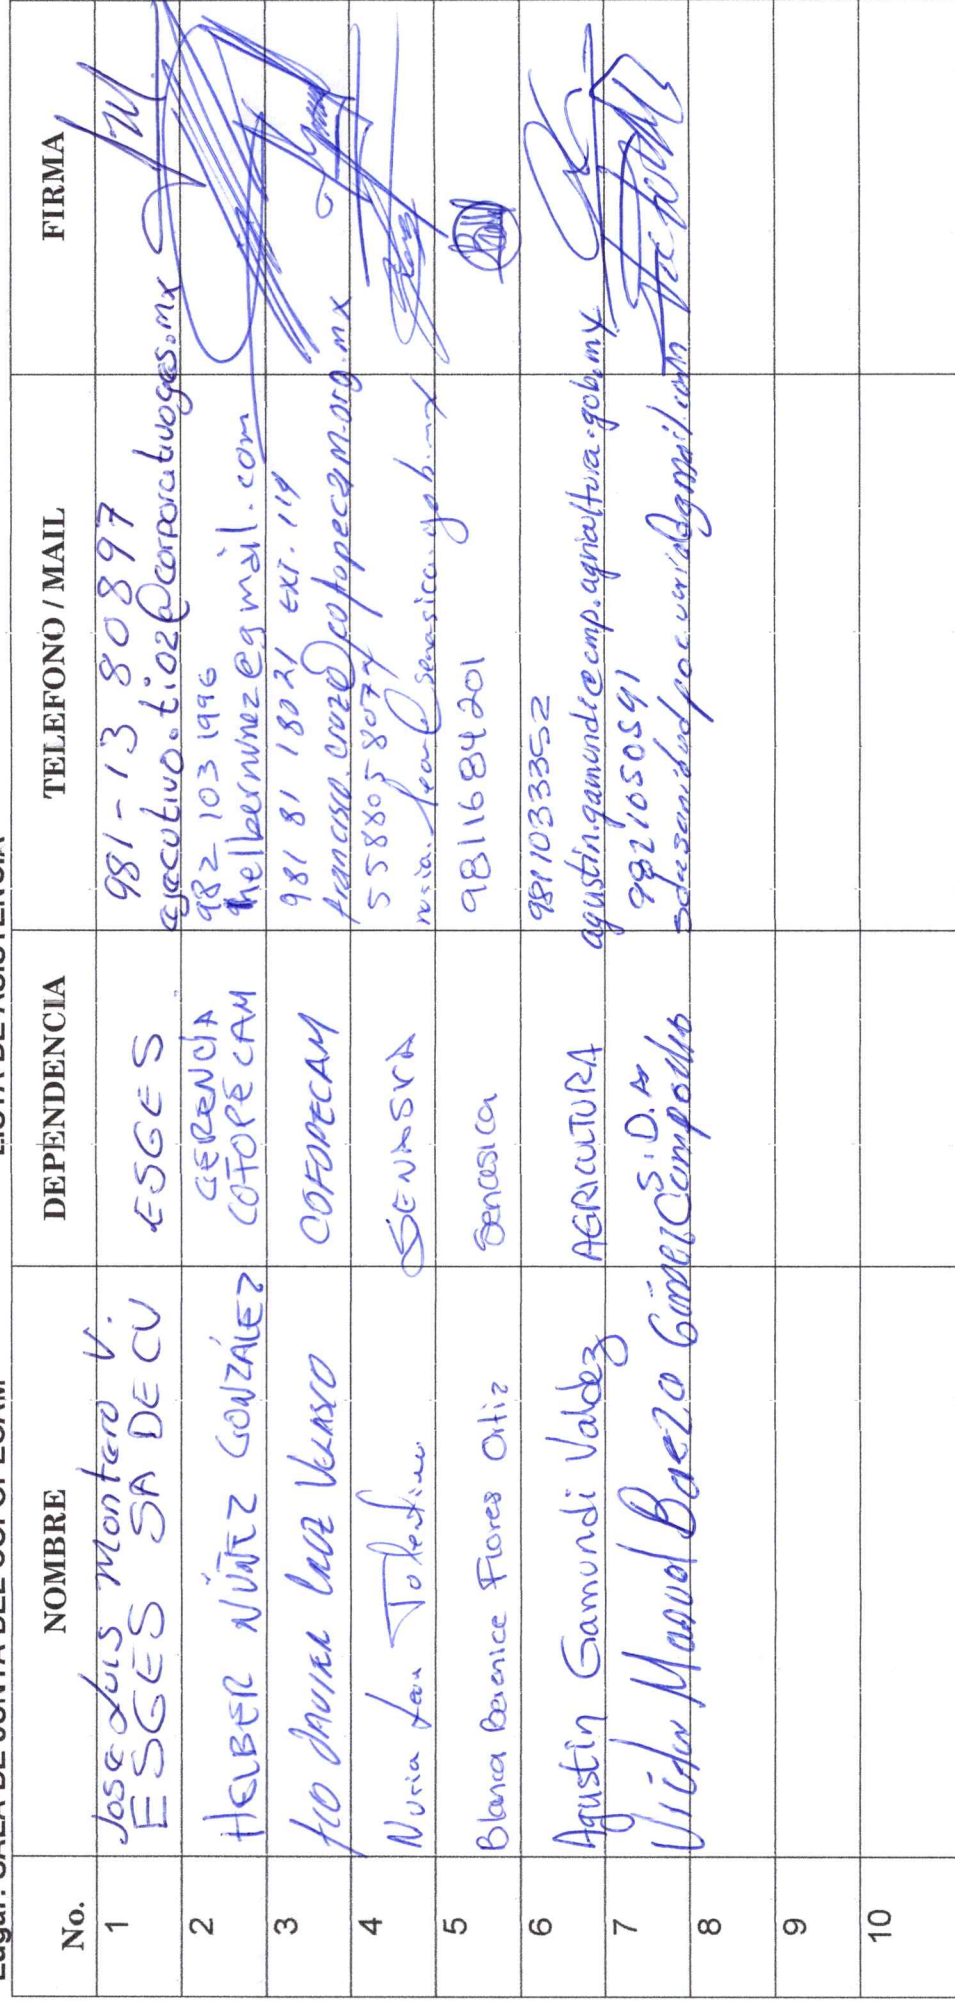 Lugar: SALA DE JUNTA DEL COPOPECAM LISTA DE ASISTENCIA
No. NOMBRE DEPENDENCIA TELEFONO / MAIL FIRMA
1 Jose Luis Montero V. ESGES 981-13 80897
ESGES SA DE CV ejecutivo.ti02@corporativoges.mx
2 HELBER NÚÑEZ GONZÁLEZ GERENCIA 982 103 1996
COTOPECAM helbernunez@gmail.com
3 FCO JAVIER CRUZ VELASCO COFOPECAM 981 81 18021 EXT. 119
francisco.cruz@cofopecam.org.mx
4 Nuria Leau Tolentino 5588058074
5 Blanca Berenice Flores Ortiz Senasica 9811684201
6 Agustin Gamundi Valdez AGRICULTURA 9811033352
agustin.gamundi@cmp.agricultura.gob.mx
7 Victor Manuel Baeza Gómez S.D.A 9821050591
Campeche
8
9
10